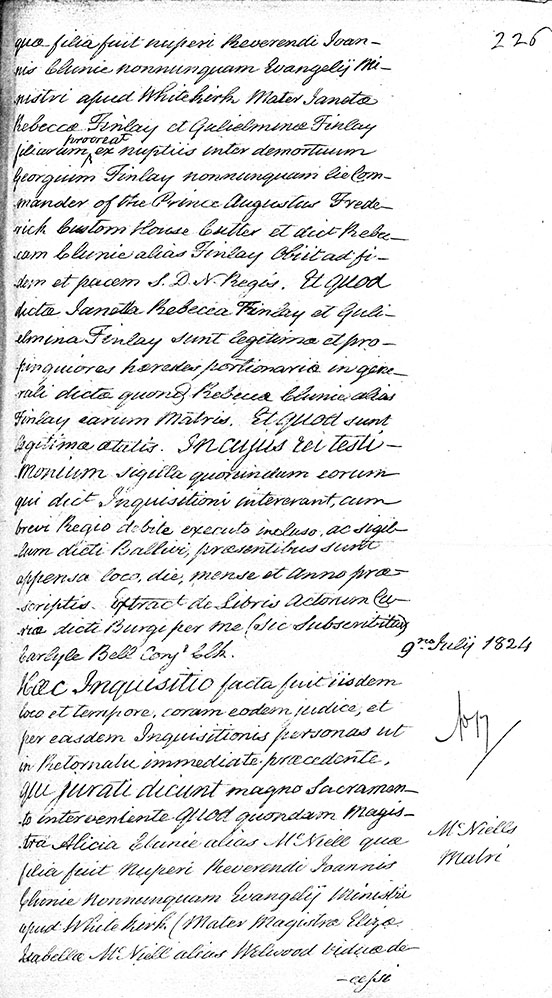 226
quæ filia fuit nuperi Reverendi Joan-
nis Clunie nonnunquam Evangelij Mi-
nistri apud Whitekirk Mater Janetæ
Rebeccæ Finlay et Gulielminæ Finlay
procreat
filiarum ex nuptiis inter demortuum
Georgium Finlay nonnunquam lie Com-
mander of the Prince Augustus Frede-
rick Custom House Cutter et dict Rebec-
cam Clunie alias Finlay Obiit ad fi-
dem et pacem S. D. N. Regis. Et quod
dictæ Janetta Rebecca Finlay et Guli-
elmina Finlay sunt legitimæ et pro-
pinquiores hæredes portionariæ in gene-
rali dictæ quond Rebeccæ Clunie alias
Finlay earum Matris. Et quod sunt
legitimæ ætatis. In cujus rei testi-
monium sigilla quorundum eorum
qui dict Inquisitioni intererant, cum
brevi Regio debite executo incluso, ac sigil-
lum dicti Ballivi, præsentibus sunt
appensa loco, die, mense et Anno præ-
scriptis. Extract de Libris Actorum Cu-
riæ dicti Burgi per me (sic Subscribitur)
Carlyle Bell Conj Clk.
9no Julij 1824
Hæc Inquisitio facta fuit iisdem
loco et tempore, coram eodem judice, et
per easdem Inquisitionis personas ut
in Retornatu immediate præcedente,
qui jurati dicunt magno Sacramen-
to interveniente quod quondam Magis-
tra Alicia Clunie alias McNiell quæ
McNiells
Matri
filia fuit nuperi Reverendi Joannis
Clunie nonnunquam Evangelij Ministri
apud Whitekirk (Mater Magistræ Elizæ
Isabellæ McNiell alias Welwood viduæ de-
-cessi